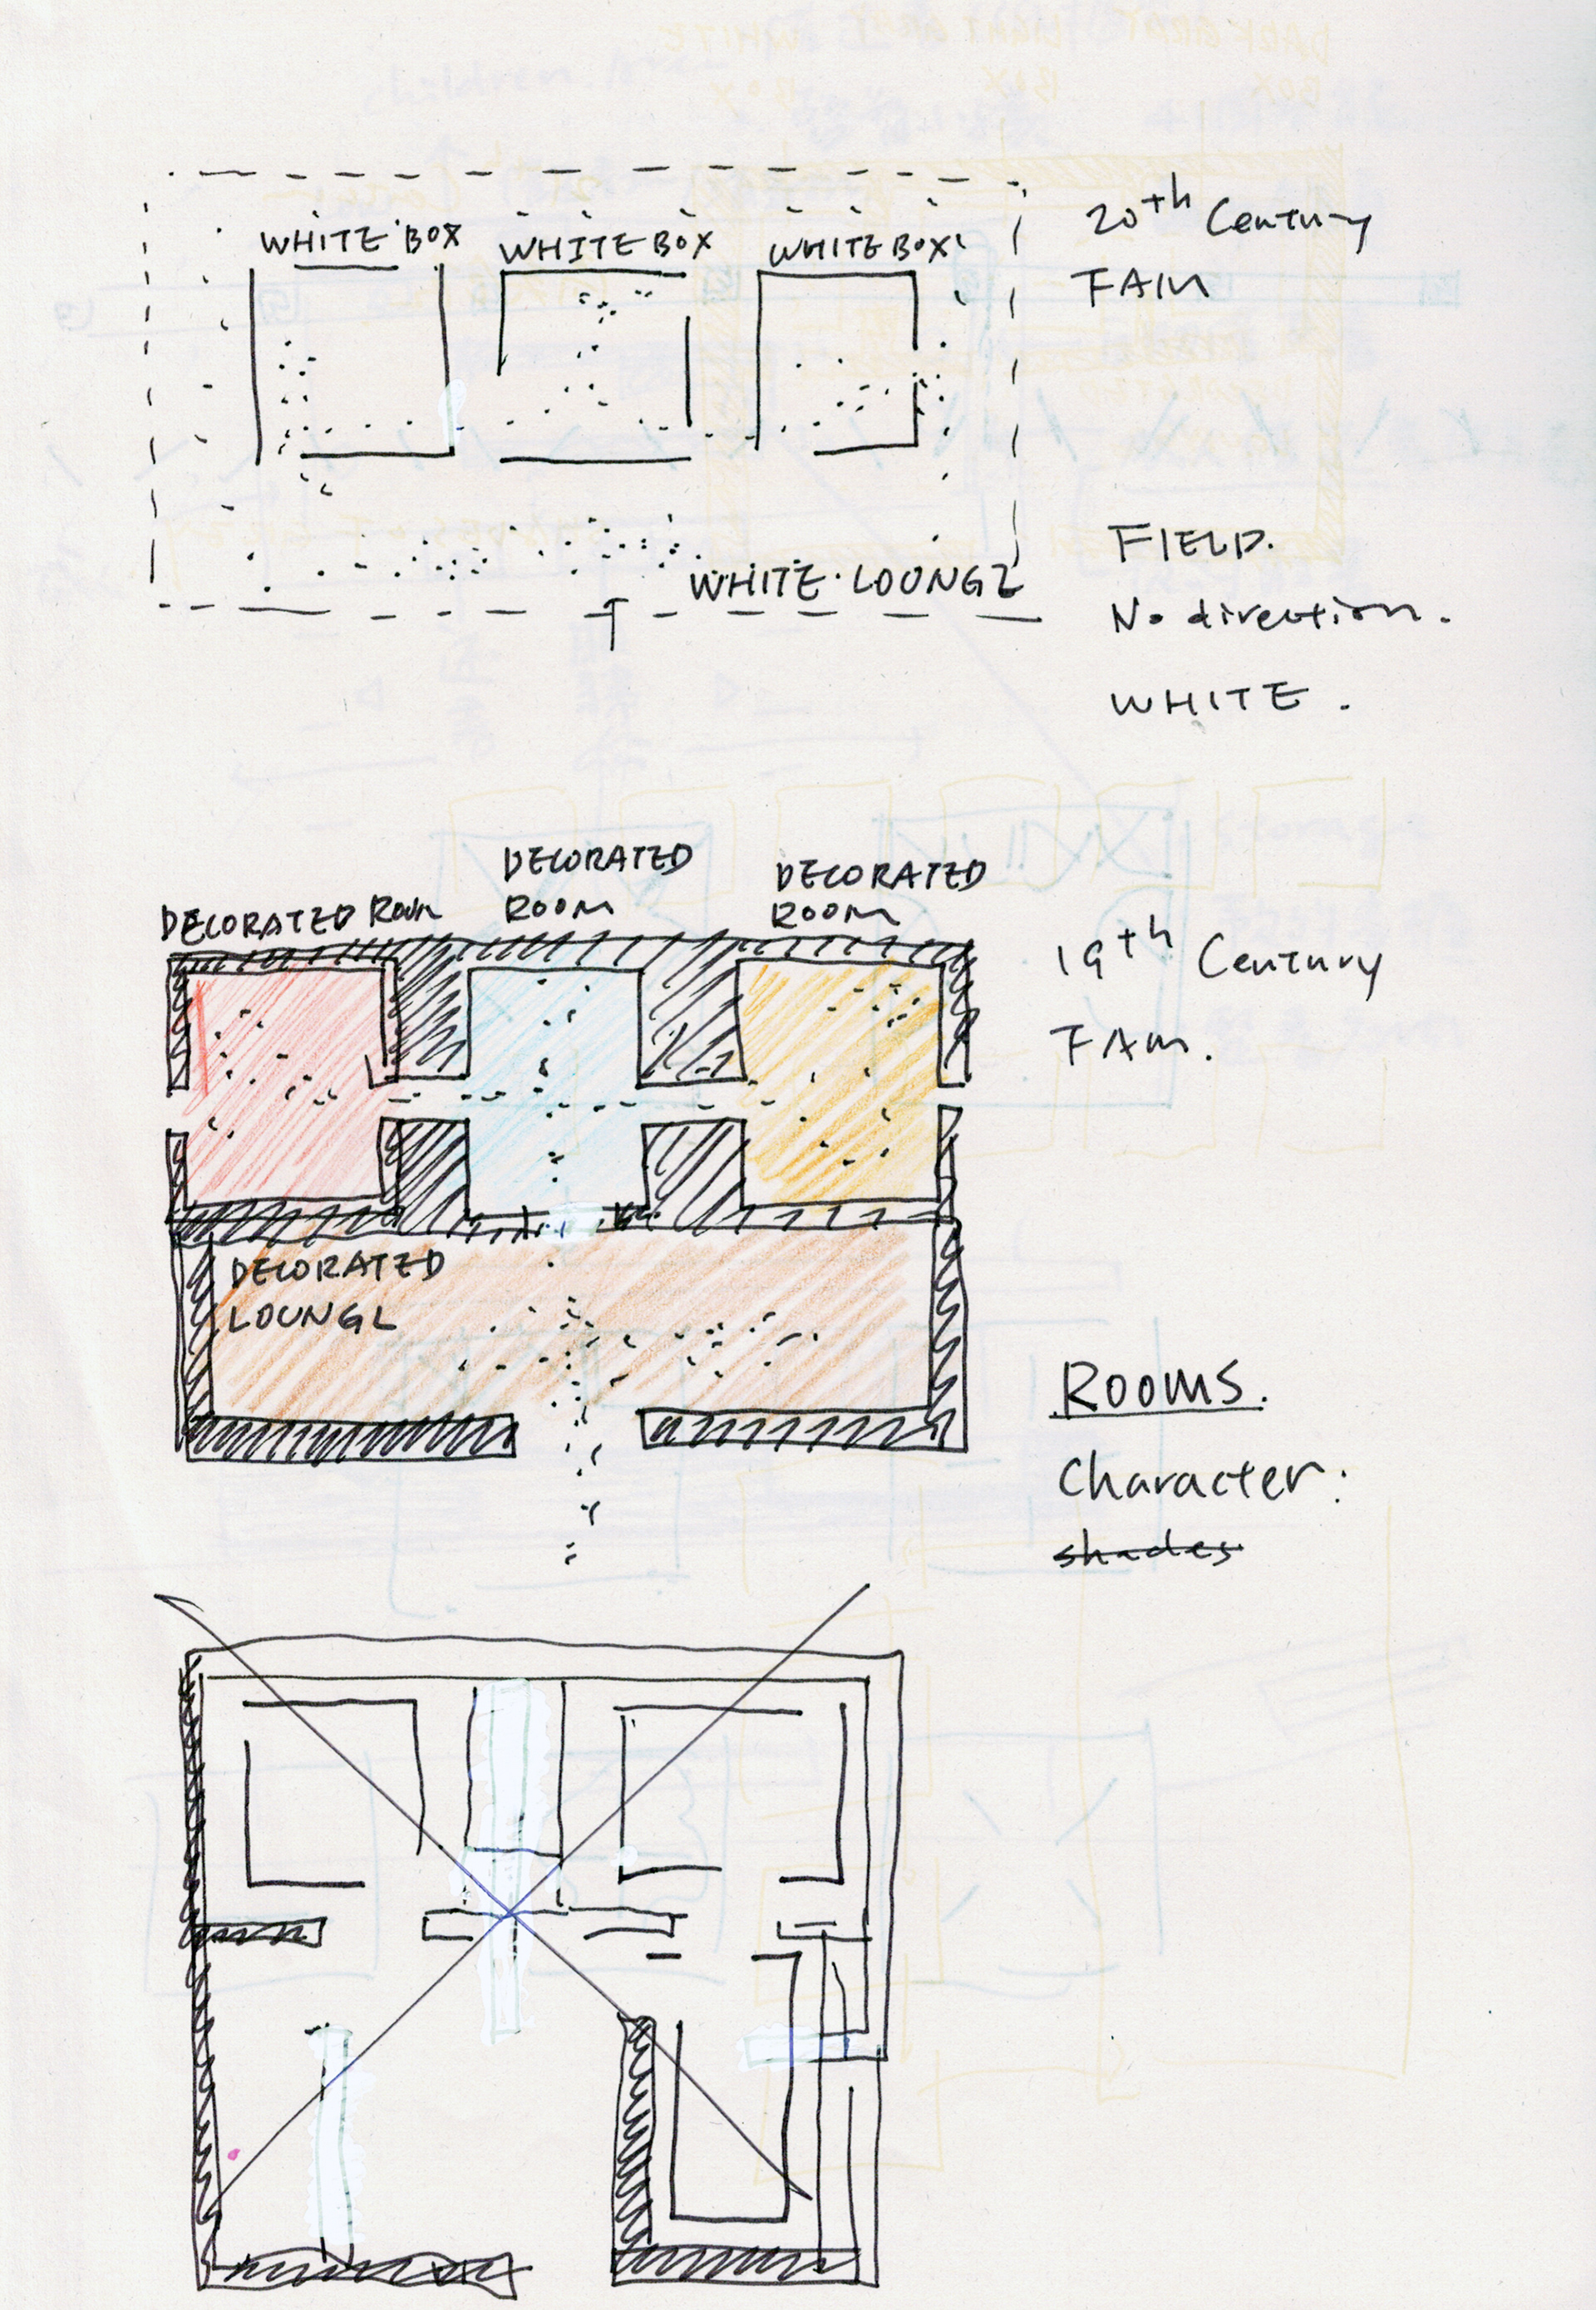 WHITE BOX
WHITE BOX
WHITE BOX
20th Century
FAM
FIELD.
WHITE LOUNGE
No direction.
WHITE.
DECORATED ROOM
DECORATED
ROOM
DECORATED
ROOM
19th Century
FAM.
DECORATED
LOUNGE
ROOMS.
Character:
shades